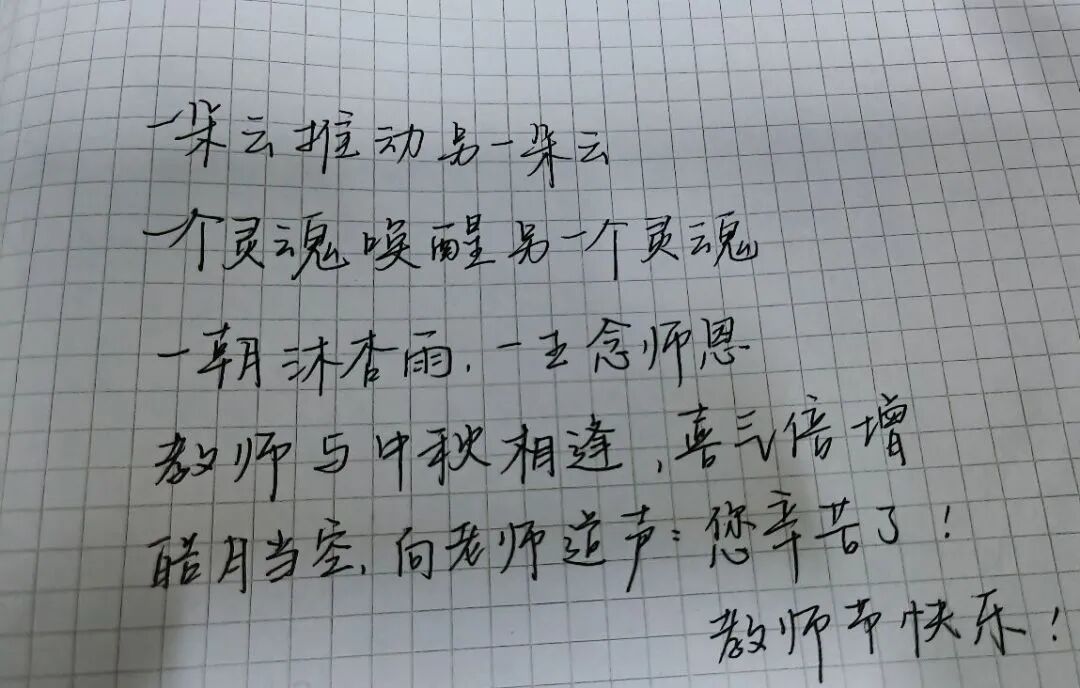 一朵云推动另一朵云
一个灵魂唤醒另一个灵魂
一朝沐杏雨，一生念师恩
教师与中秋相逢，喜气倍增
皓月当空，向老师道声：您辛苦了！
教师节快乐！